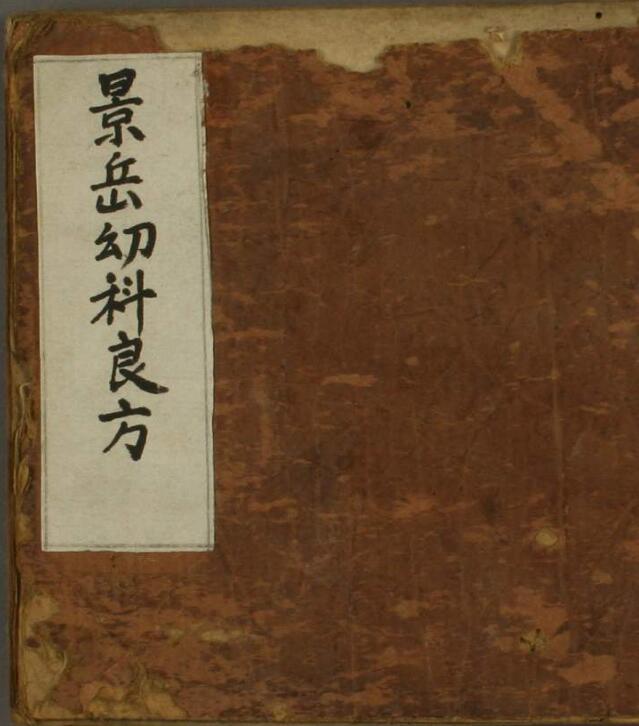 景岳幼科良方